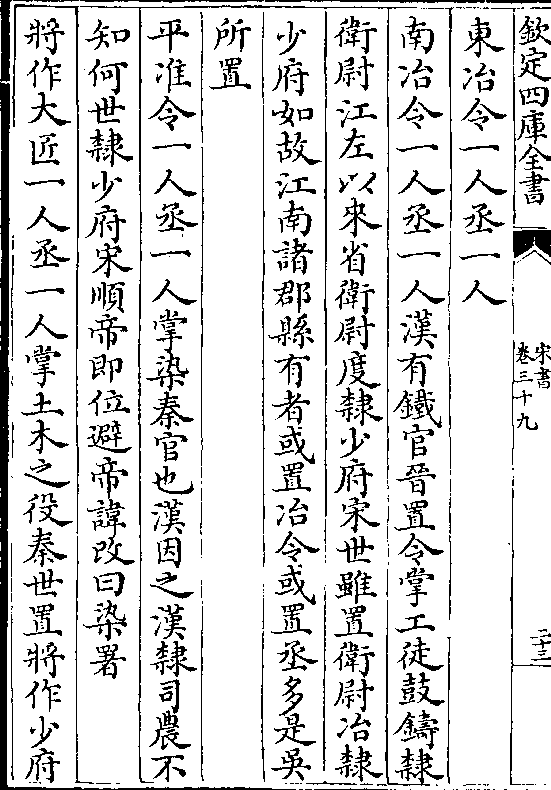 欽定四庫全書
宋書
卷三十九
二十三
東冶令一人丞一人
南冶令一人丞一人漢有鐵官晉置令掌工徒鼓鑄隸
衛尉江左以來省衛尉度隸少府宋世雖置衛尉冶隸
少府如故江南諸郡縣有者或置冶令或置丞多是吳
所置
平准令一人丞一人掌染秦官也漢因之漢隸司農不
知何世隸少府宋順帝即位避帝諱改曰染署
將作大匠一人丞一人掌土木之役秦世置將作少府